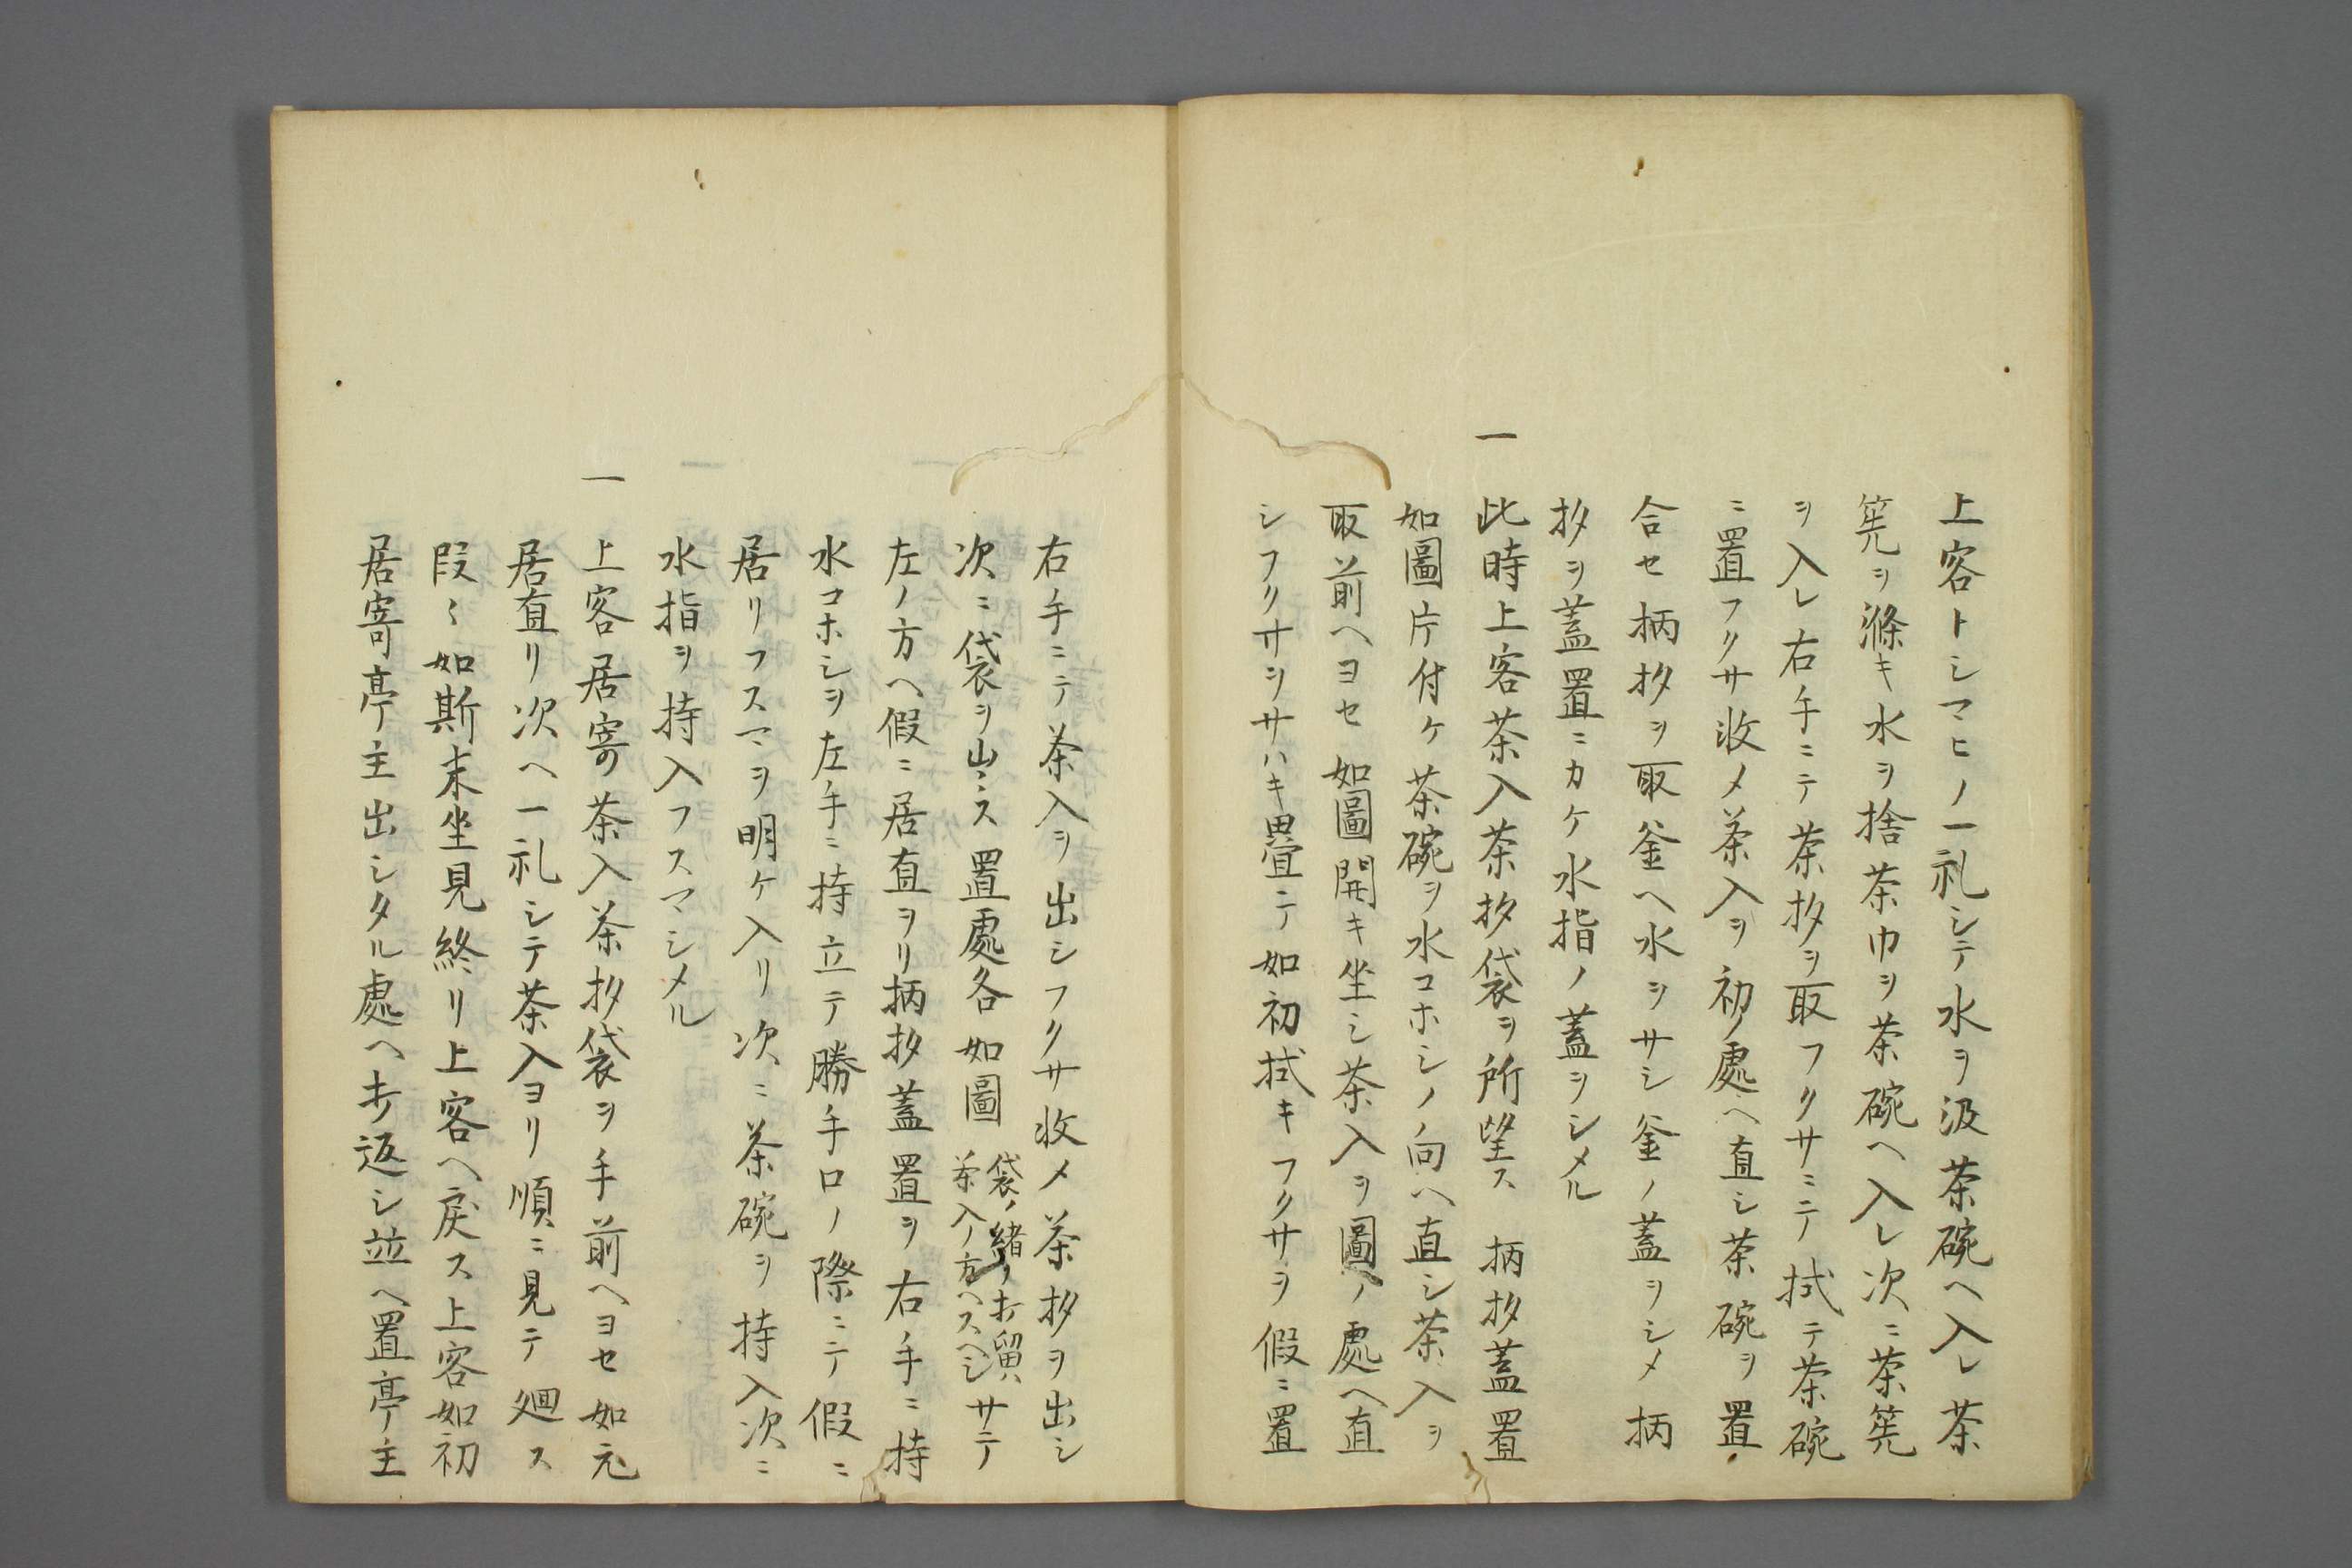 上客トシマヒノ一礼シテ水ヲ汲茶碗ヘ入レ茶
筅ヲ滌キ水ヲ捨茶巾ヲ茶碗ヘ入レ次ニ茶筅
ヲ入レ右手ニテ茶抄ヲ取フクサニテ拭テ茶碗
ニ置フクサ收メ茶入ヲ初ノ處ヘ直シ茶碗ヲ置
合セ柄抄ヲ取釜ヘ水ヲサシ釜ノ蓋ヲシメ柄
抄ヲ蓋置ニカケ水指ノ蓋ヲシメル
一 此時上客茶入茶抄袋ヲ所望ス 柄抄蓋置
如圖片付ケ茶碗ヲ水コホシノ向ヘ直シ茶入ヲ
取前ヘヨセ如圖開キ坐シ茶入ヲ圖ノ處ヘ直
シフクサヲサハキ畳テ如初拭キフクサヲ假ニ置
右手ニテ茶入ヲ出シフクサ收メ茶抄ヲ出シ
次ニ袋ヲ出ス置處各如圖 袋ノ緒ノ打留ハ
茶入ノ方ヘスヘシ サテ
左ノ方ヘ假ニ居直ヲリ柄抄蓋置ヲ右手ニ持
水コホシヲ左手ニ持立テ勝手口ノ際ニテ假ニ
居リフスマヲ明ケ入リ次ニ茶碗ヲ持入次ニ
水指ヲ持入フスマシメル
一 上客居寄茶入茶抄袋ヲ手前ヘヨセ如元
居直リ次ヘ一礼シテ茶入ヨリ順ニ見テ廻ス
段〻如斯末坐見終リ上客ヘ戻ス上客如初
居寄亭主出シタル處ヘ打返シ並ヘ置亭主